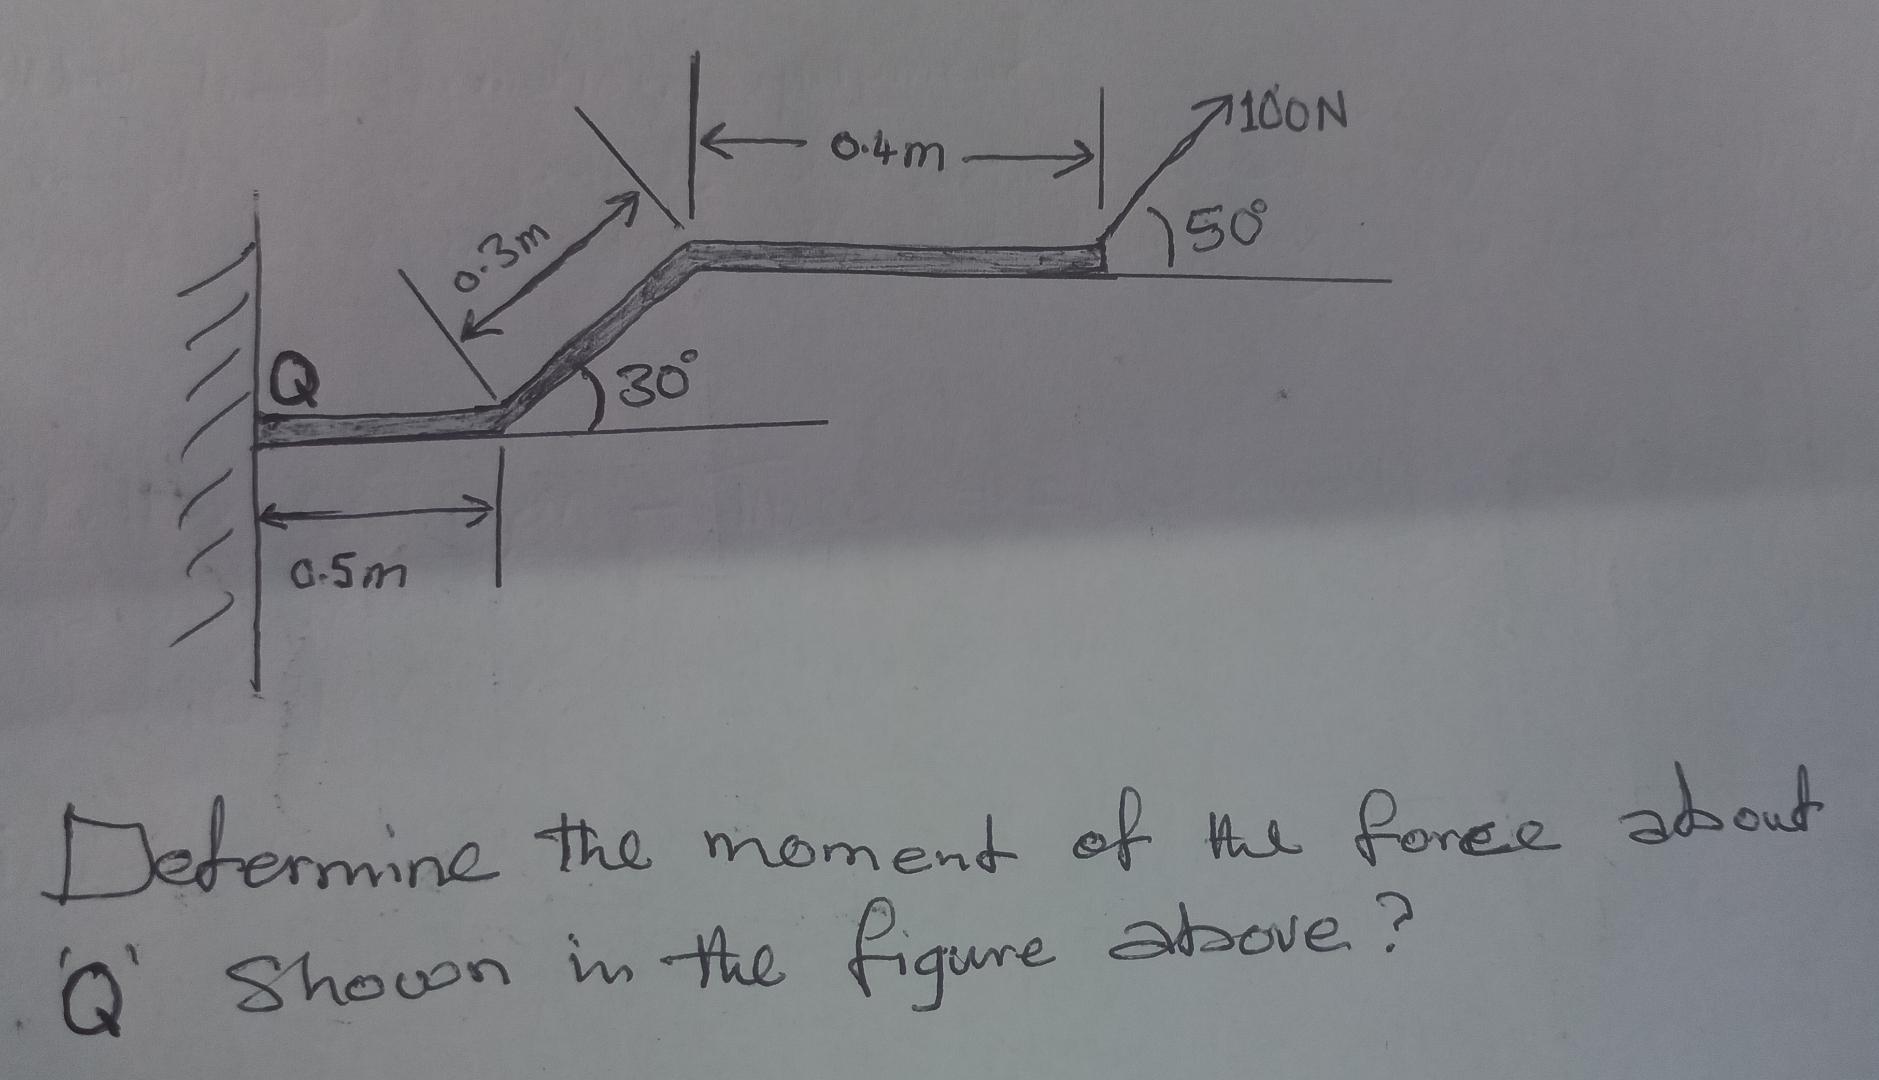 100N
0.4m
50°
0.3m
Q
30°
0.5m
Determine the moment of the force about
'Q' Shown in the figure above?